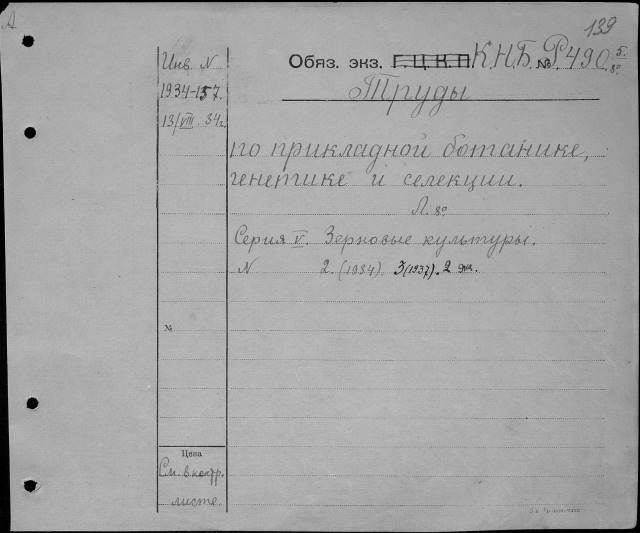 139
Обяз. экз. Г.Ц.К.П. К.Н.Б. № Р490 5/8°
Инв. N
1934-157.
13/VIII 34г.
Труды
по прикладной ботанике,
генетике и селекции.
Л. 8°
Серия V. Зерновые культуры.
N 2. (1934). 3(1937). 2 экз.
№
Цена
См. в контр.
листе.